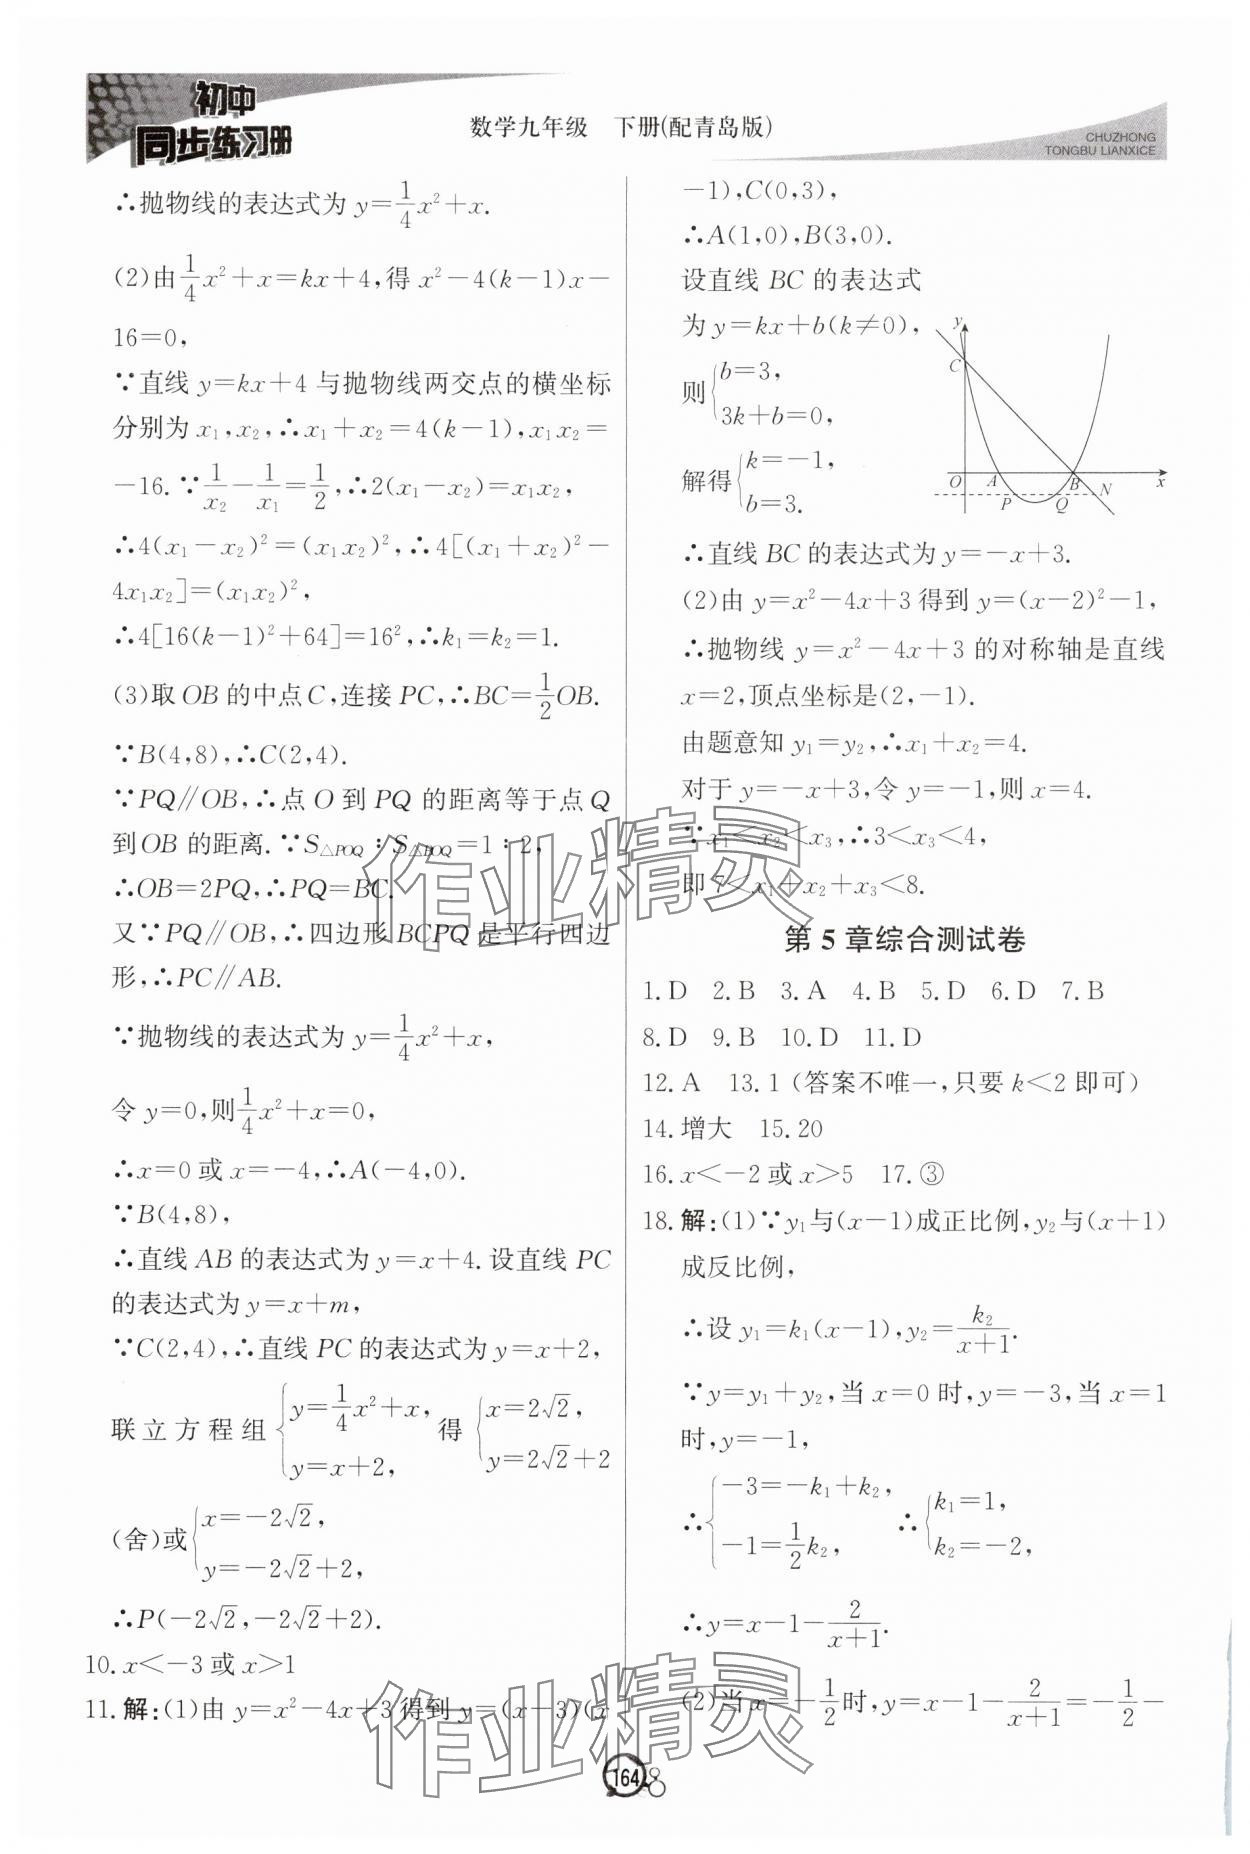 初中
同步练习册
数学九年级 下册(配青岛版)
CHUZHONG
TONGBU LIANXICE
∴抛物线的表达式为 y=1/4x²+x.
(2)由1/4x²+x=kx+4,得 x²-4(k-1)x-
16=0,
∵直线 y=kx+4 与抛物线两交点的横坐标
分别为 x₁,x₂,∴x₁+x₂=4(k-1),x₁x₂=
-16.∵1/x₂-1/x₁=1/2,∴2(x₁-x₂)=x₁x₂,
∴4(x₁-x₂)²=(x₁x₂)²,∴4[(x₁+x₂)²-
4x₁x₂]=(x₁x₂)²,
∴4[16(k-1)²+64]=16²,∴k₁=k₂=1.
(3)取 OB 的中点 C,连接 PC,∴BC=1/2OB.
∵B(4,8),∴C(2,4).
∵PQ∥OB,∴点 O 到 PQ 的距离等于点 Q
到 OB 的距离.∵S△POQ:S△BOQ=1:2,
∴OB=2PQ,∴PQ=BC.
又∵PQ∥OB,∴四边形 BCPQ 是平行四边
形,∴PC∥AB.
∵抛物线的表达式为 y=1/4x²+x,
令 y=0,则1/4x²+x=0,
∴x=0 或 x=-4,∴A(-4,0).
∵B(4,8),
∴直线 AB 的表达式为 y=x+4.设直线 PC
的表达式为 y=x+m,
∵C(2,4),∴直线 PC 的表达式为 y=x+2,
联立方程组{y=1/4x²+x, y=x+2, 得{x=2√2, y=2√2+2
(舍)或{x=-2√2, y=-2√2+2,
∴P(-2√2,-2√2+2).
10.x<-3 或 x>1
11.解:(1)由 y=x²-4x+3 得到 y=(x-3)(x
-1),C(0,3),
∴A(1,0),B(3,0).
设直线 BC 的表达式
为 y=kx+b(k≠0),
则{b=3, 3k+b=0,
解得{k=-1, b=3.
y
C
O A B N x
P Q
∴直线 BC 的表达式为 y=-x+3.
(2)由 y=x²-4x+3 得到 y=(x-2)²-1,
∴抛物线 y=x²-4x+3 的对称轴是直线
x=2,顶点坐标是(2,-1).
由题意知 y₁=y₂,∴x₁+x₂=4.
对于 y=-x+3,令 y=-1,则 x=4.
∵x₁<x₂<x₃,∴3<x₃<4,
即 7<x₁+x₂+x₃<8.
第 5 章综合测试卷
1.D 2.B 3.A 4.B 5.D 6.D 7.B
8.D 9.B 10.D 11.D
12.A 13.1(答案不唯一,只要 k<2 即可)
14.增大 15.20
16.x<-2 或 x>5 17.③
18.解:(1)∵y₁与(x-1)成正比例,y₂与(x+1)
成反比例,
∴设 y₁=k₁(x-1),y₂=k₂/(x+1).
∵y=y₁+y₂,当 x=0 时,y=-3,当 x=1
时,y=-1,
∴{-3=-k₁+k₂, -1=1/2k₂, ∴{k₁=1, k₂=-2,
∴y=x-1-2/(x+1).
(2)当 x=-1/2时,y=x-1-2/(x+1)=-1/2-
作业精灵
作业精灵
164